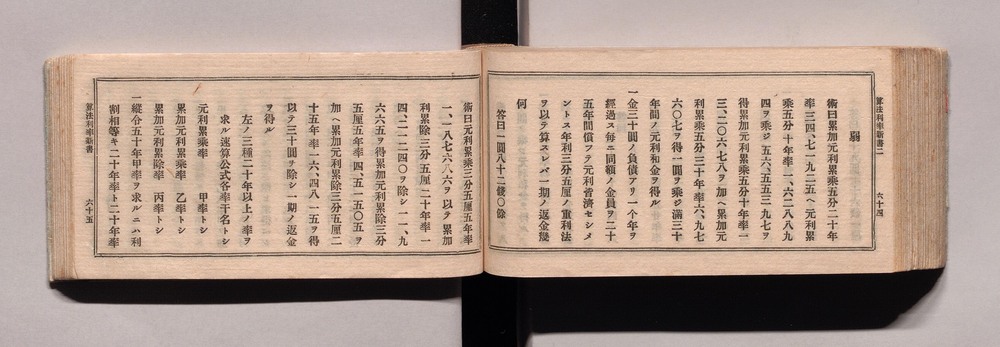 算法利率新書二
六十四
弱
術曰累加元利累乘五分二十年
率三四、七一九二五ヘ元利累
乘五分十年率一、六二八八九
四ヲ乘ジ五六、五五三九七ヲ
得累加元利累乘五分十年率一
三、二〇六七八ヲ加ヘ累加元
利累乘五分三十年率六九、七
六〇七ヲ得一圓ヲ乘ジ滿三十
年間ノ元利和金ヲ得ル
一金三十圓ノ負債アリ一个年ヲ
經過スル毎ニ同額ノ金員ヲ二十
五年間償フテ元利皆濟セシメ
ントス年利三分五厘ノ重利法
ヲ以テ算スレバ一期ノ返金幾
何
答曰一圓八十二錢〇餘
術曰元利累乘三分五厘五年率
一、一八七六八六ヲ以テ累加
利累除三分五厘二十年率一
四、二一二四〇ヲ除シ一一、九
六六五ヲ得累加元利累除三分
五厘五年率四、五一五〇五ヲ
加ヘ累加元利累除三分五厘二
十五年率一六、四八一五ヲ得
以テ三十圓ヲ除シ一期ノ返金
ヲ得ル
左ノ三種二十年以上ノ率ヲ
求ル速算公式各率于名トシ
元利累乘率 甲率トシ
累加元利累乘率 乙率トシ
累加元利累除率 丙率トシ
一縱令五十年甲率ヲ求ルニハ利
割相等キ二十年率ト二十年率
算法利率新書
六十五